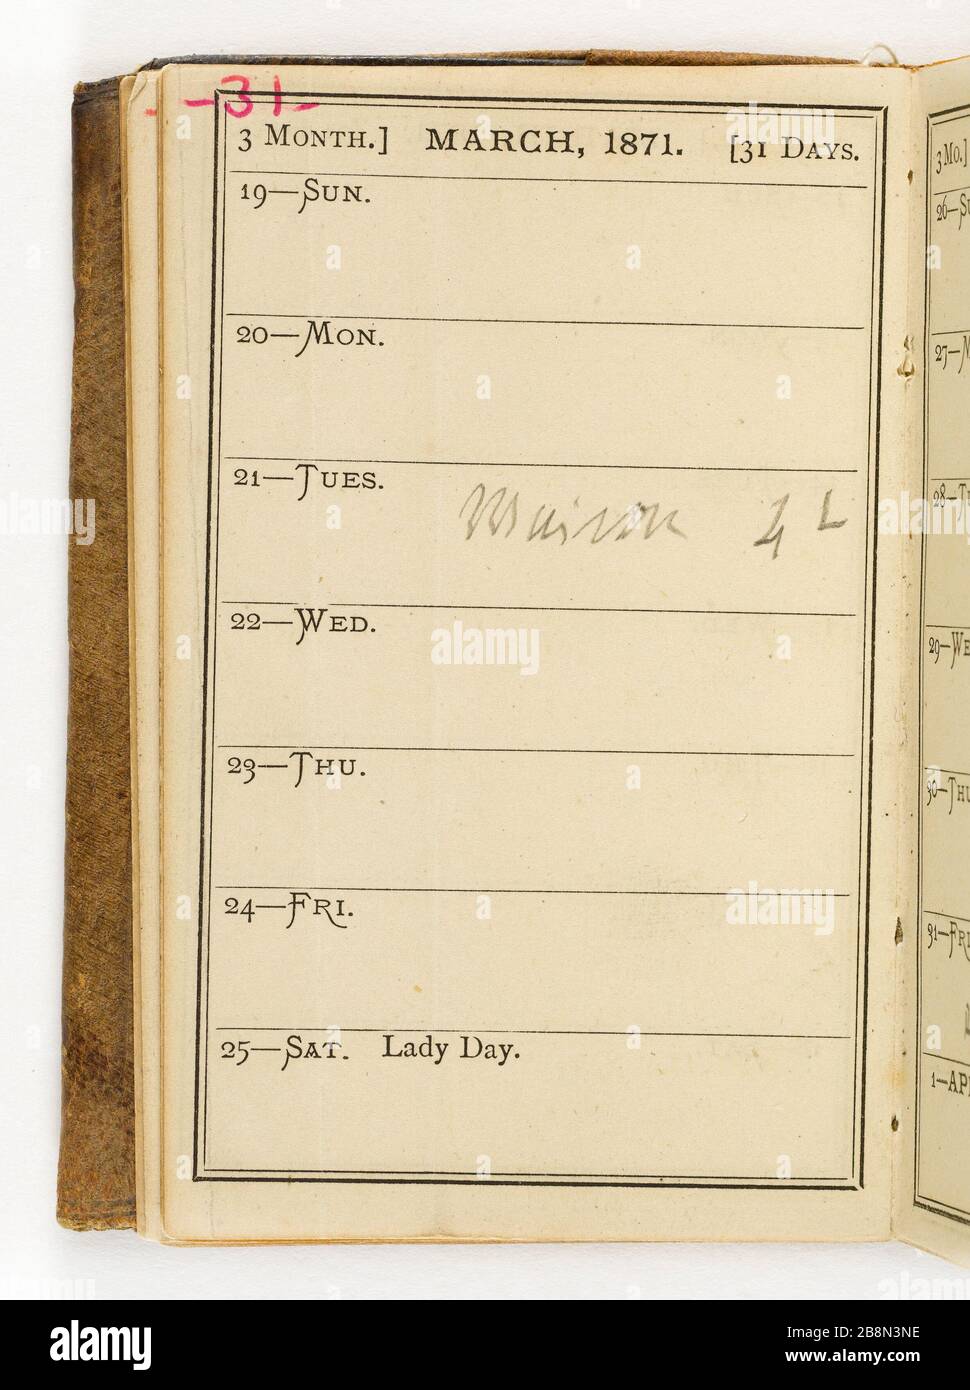 -31-
3 MONTH.] MARCH, 1871. [31 DAYS.
19—SUN.
20—MON.
21—TUES. Maison 4 L
22—WED.
23—THU.
24—FRI.
25—SAT. Lady Day.
3 MO.]
26—SU
27—M
28—TU
29—WE
30—THU
31—FRI
1—AP
alamy
alamy
Image ID: 2B8N3NE
www.alamy.com